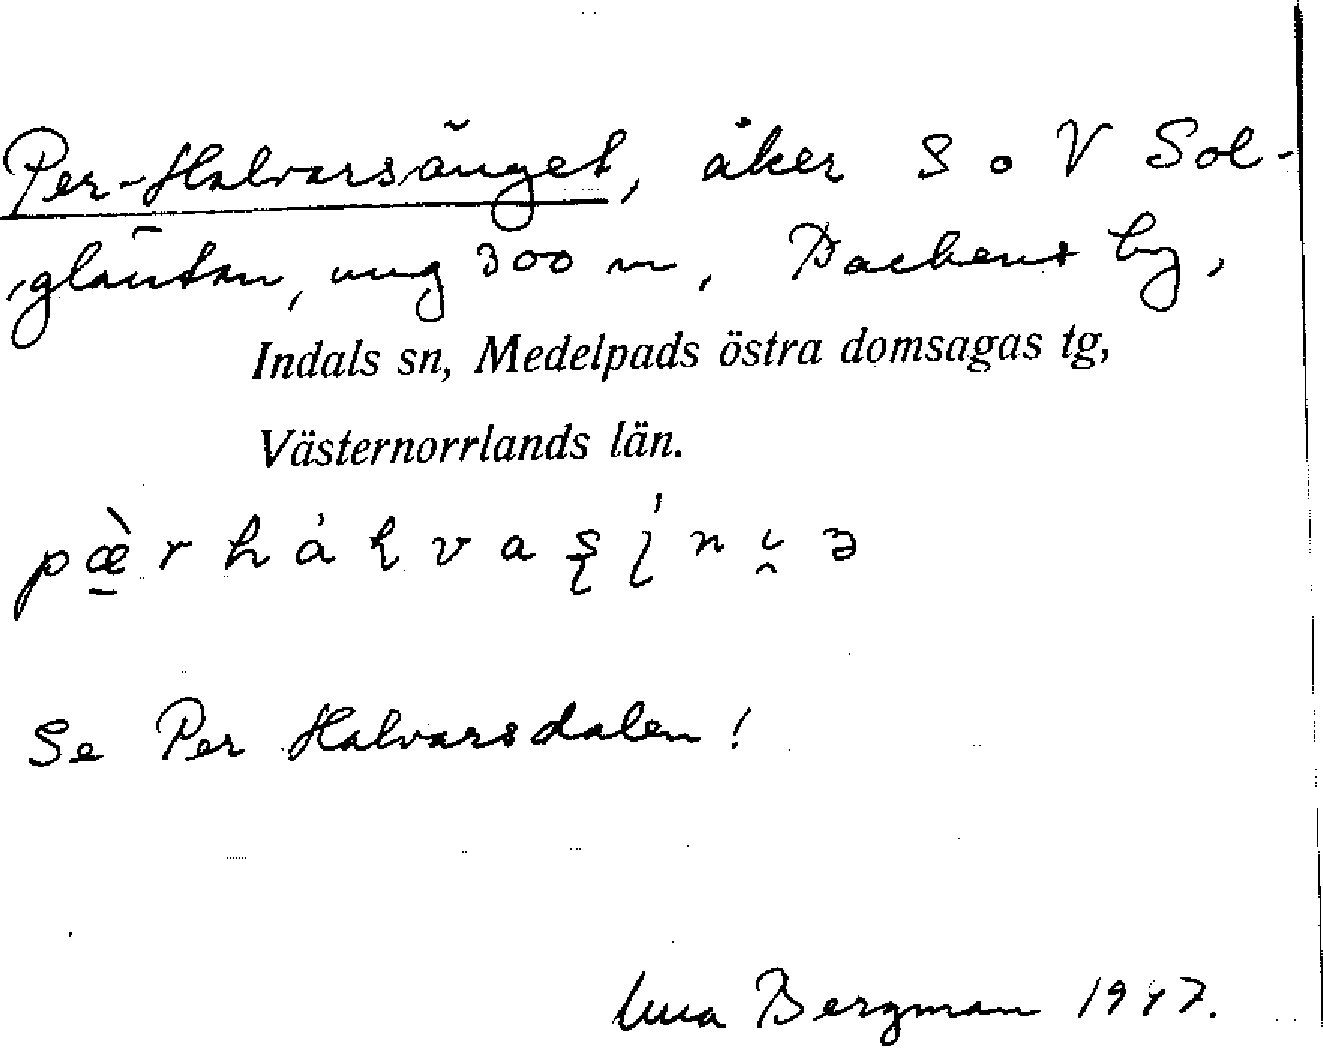 Per-Halvarsänget, åker S o V Sol-
gläntan, ung 300 m, Backens by,
Indals sn, Medelpads östra domsagas tg,
Västernorrlands län.
Se Per Halvarsdalen!
Bergman 1947.